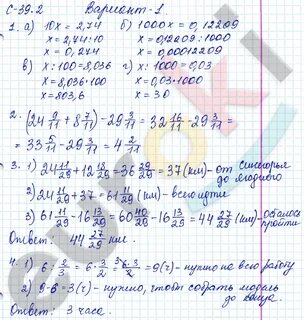 С-39.2 Вариант-1
1. а) 10x = 2,74 б) 1000x = 0,12209
x = 2,74:10 x = 0,12209:1000
x = 0,274 x = 0,00012209
в) x:100=8,036 г) x:1000=0,03
x = 8,036·100 x = 0,03·1000
x = 803,6 x = 30
2. (24 9/11 + 8 7/11) - 29 3/11 = 32 16/11 - 29 3/11 =
= 33 5/11 - 29 3/11 = 4 2/11
3. 1) 24 11/29 + 12 18/29 = 36 29/29 = 37 (км) - от
до
2) 24 11/29 + 37 = 61 11/29 (км) - всего пути
3) 61 11/29 - 16 13/29 = 60 40/29 - 16 13/29 = 44 27/29 (км) - осталось
пройти
Ответ: 44 27/29 км.
4. 1) 6 : 2/3 = 6·3/2 = 6·3/2 = 9 (ч) - нужно на всю работу
2) 9-6=3 (ч) - нужно, чтобы собрать модель
до конца.
Ответ: 3 часа.
euroki